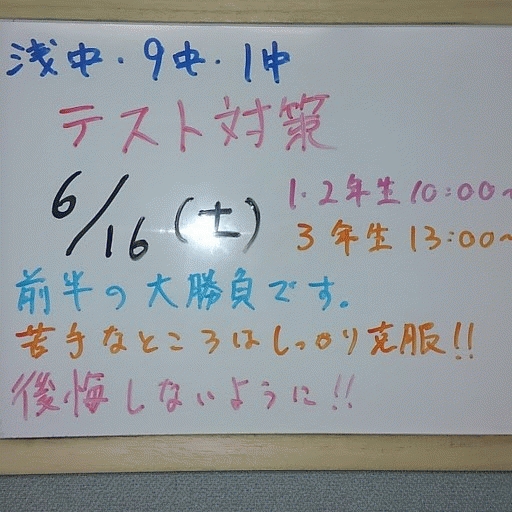 浅中・9中・1中
テスト対策
6/16(土)
1・2年生10:00~
3年生13:00~
前半の大勝負です。
苦手なところはしっかり克服!!
後悔しないように!!